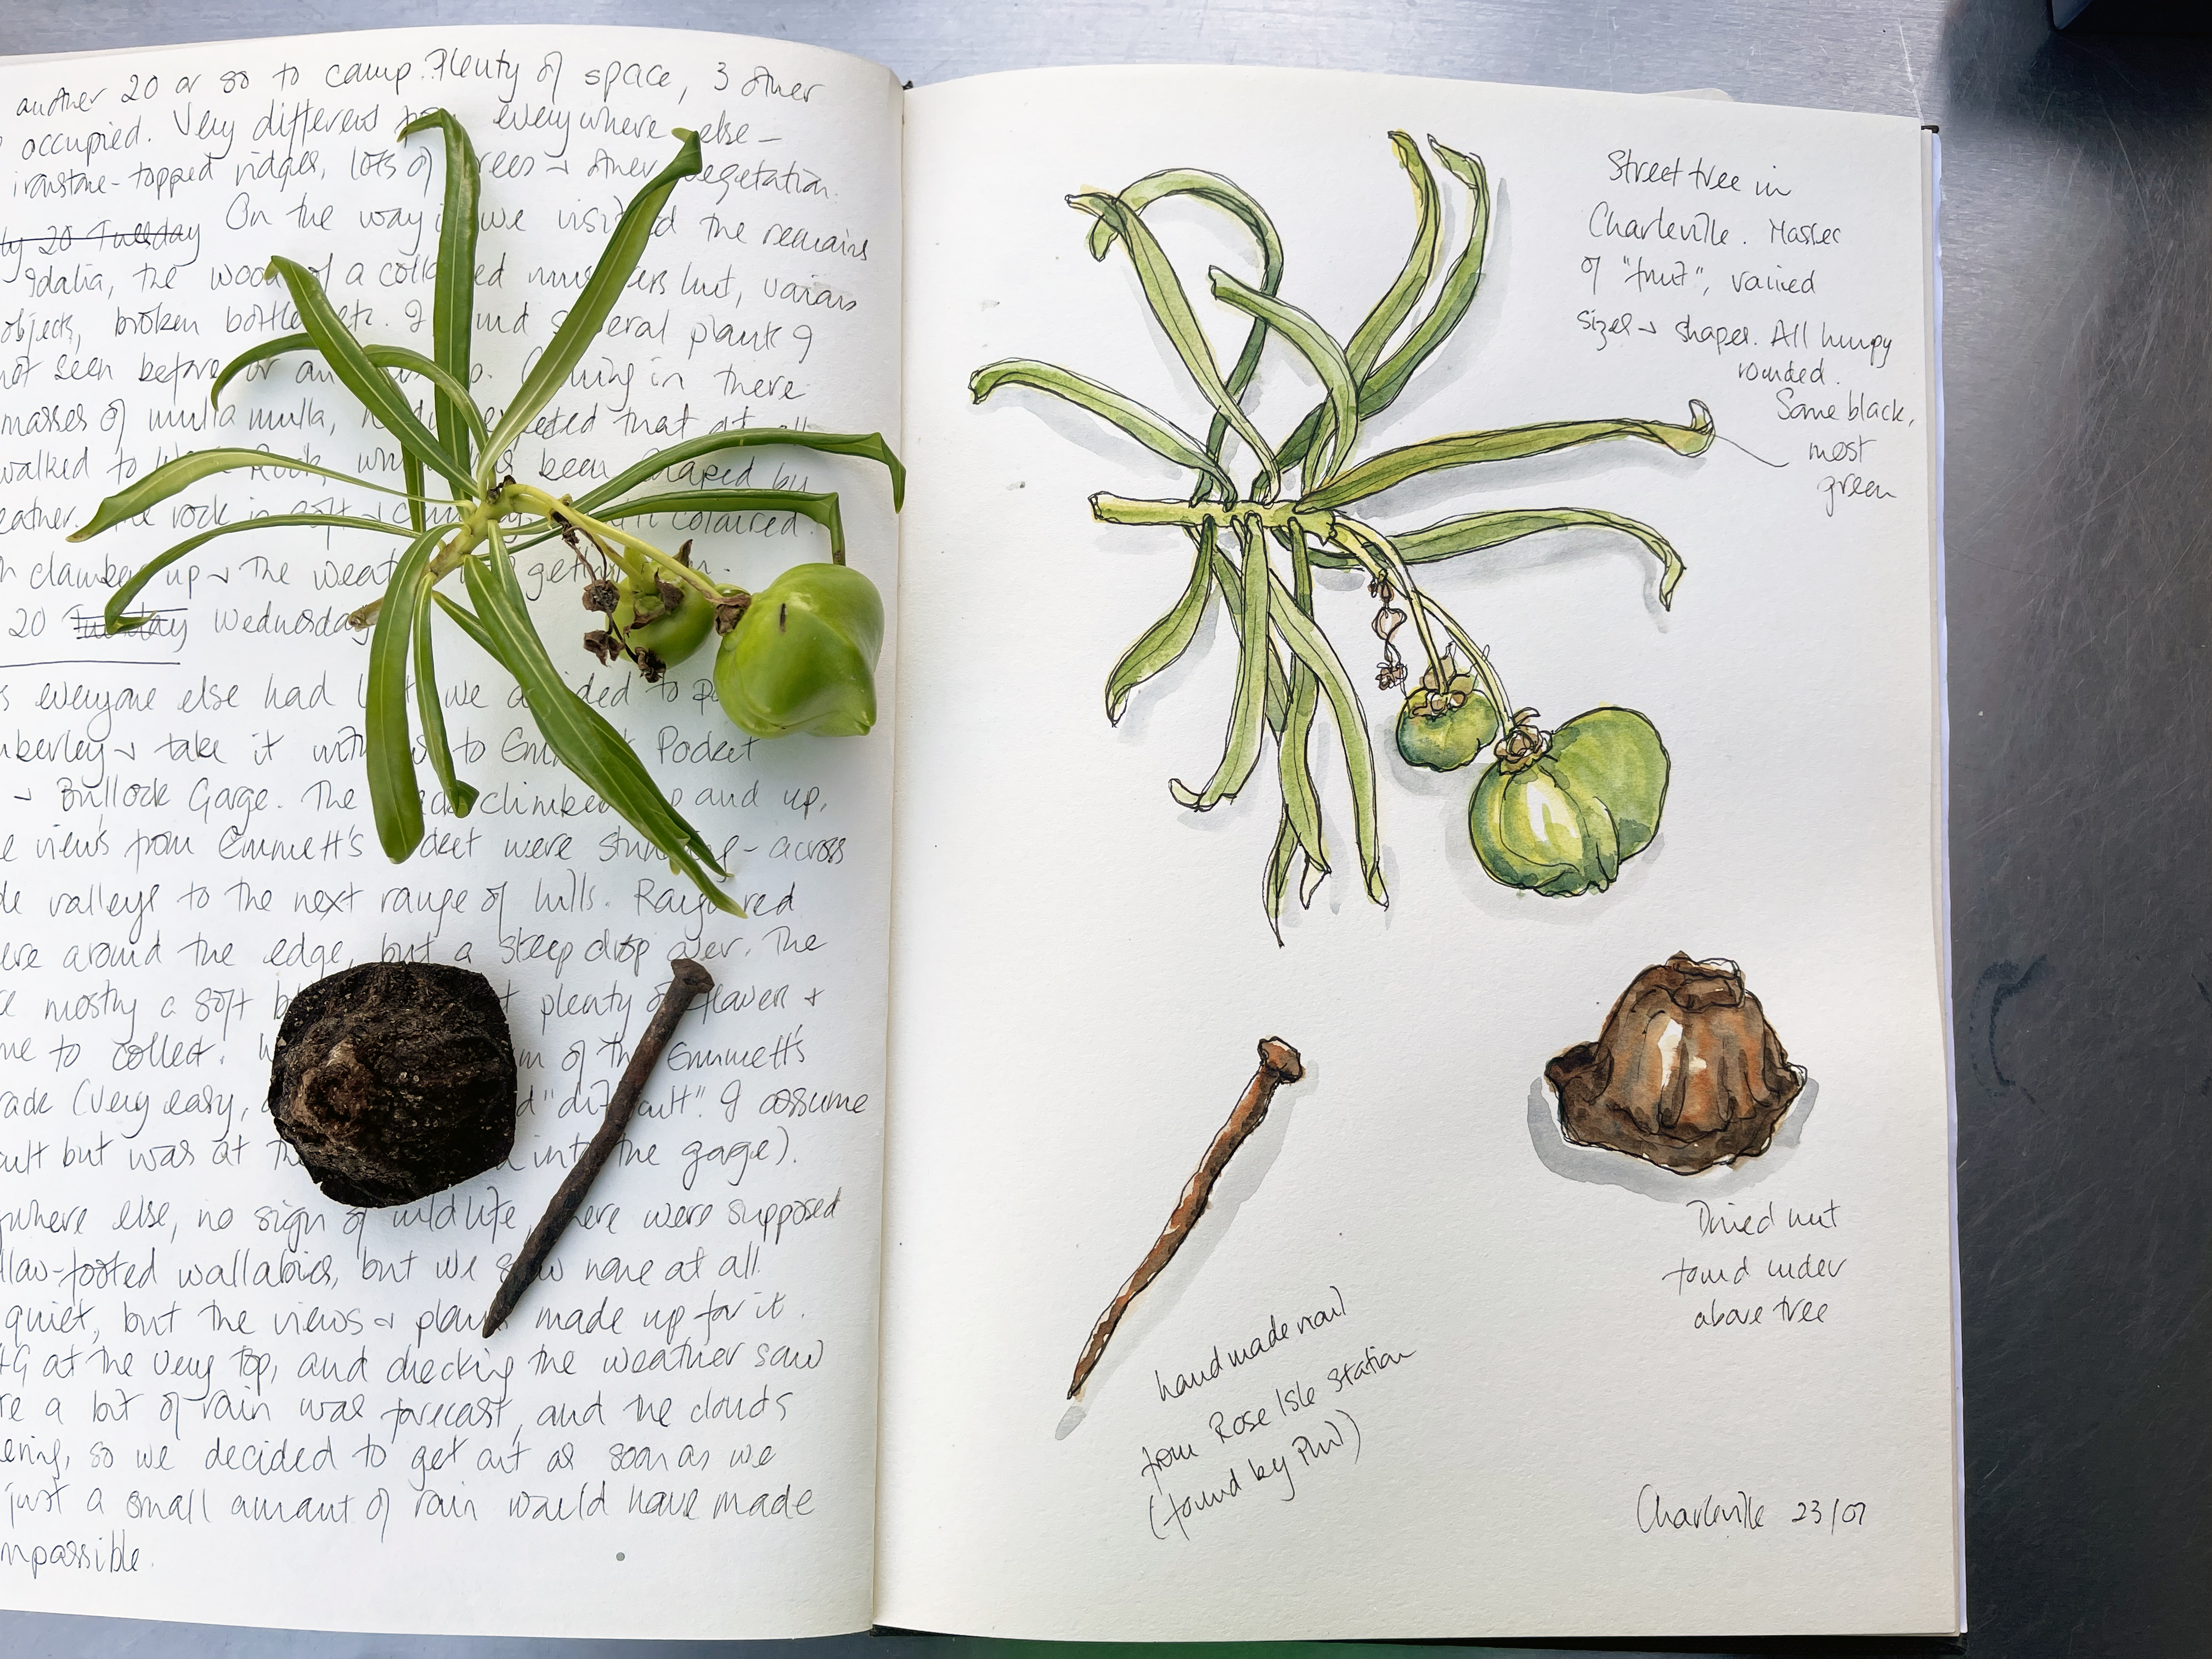 another 20 or so to camp. Plenty of space, 3 other
occupied. Very different everywhere else –
ironstone-topped ridges, lots of trees & other vegetation.
20 Tuesday On the way we visited the remains
Idalia, the wood of a collapsed musterers hut, various
objects, broken bottles etc. I found several plants I
not seen before Coming in there
masses of mulla mulla, expected that at all
walked to Rock, been shaped by
eather. The rock is soft & coloured.
clamber up & the weather
20 Tuesday Wednesday
s everyone else had left we decided to
mberley & take it with us to Emmet Pocket
& Bullock Gorge. The climbed up and up,
e views from Emmett's Pocket were stunning – across
de valleys to the next range of hills. red
ere around the edge, but a steep drop over. The
e mostly a soft plenty of flowers &
me to collect. of the Emmett's
rade (very easy, "difficult". I assume
cult but was at the into the gorge).
where else, no sign of wildlife, there were supposed
llow-footed wallabies, but we saw none at all.
quiet, but the views & plants made up for it.
4G at the very top, and checking the weather saw
re a bit of rain was forecast, and the clouds
ering, so we decided to get out as soon as we
just a small amount of rain would have made
mpassible.
Street tree in
Charleville. Masses
of "fruit", varied
sizes & shapes. All lumpy
rounded.
Some black,
most
green
Dried nut
found under
above tree
handmade nail
from Rose Isle Station
(found by Phil)
Charleville 23/07